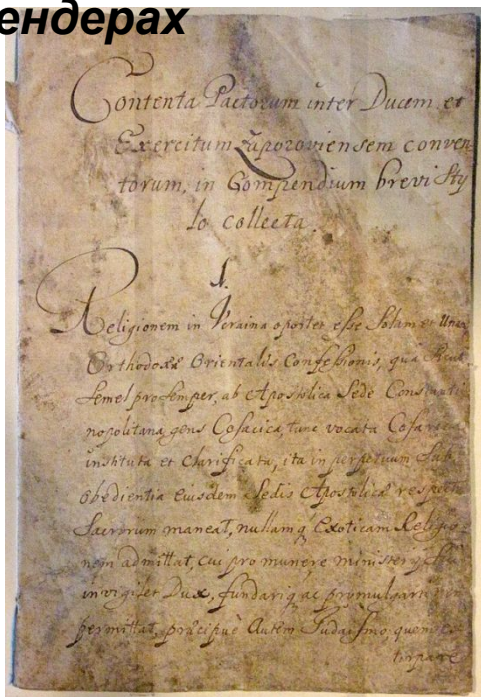 ендерах
Contenta Pactorum inter Ducem et
Exercitum Zaporoviensem conven
torum, in Compendium brevi Sty
lo collecta.
1.
Religionem in Ucraina oportet esse Solam et Unam
Orthodoxæ Orientalis Confessionis, qua
Semel pro Semper, ab Apostolica Sede Constanti
nopolitana, gens Cosacica, tunc vocata
instituta et Clarificata, ita in perpetuum Sub
obedientia Eiusdem Sedis Apostolicæ
Sacrorum maneat, nullamq Exoticam Religio
nem admittat, cui pro munere
invigilet Dux, fundariq ac promulgari
permittat, præcipuè Autem Iudaismo, quem
tirpare